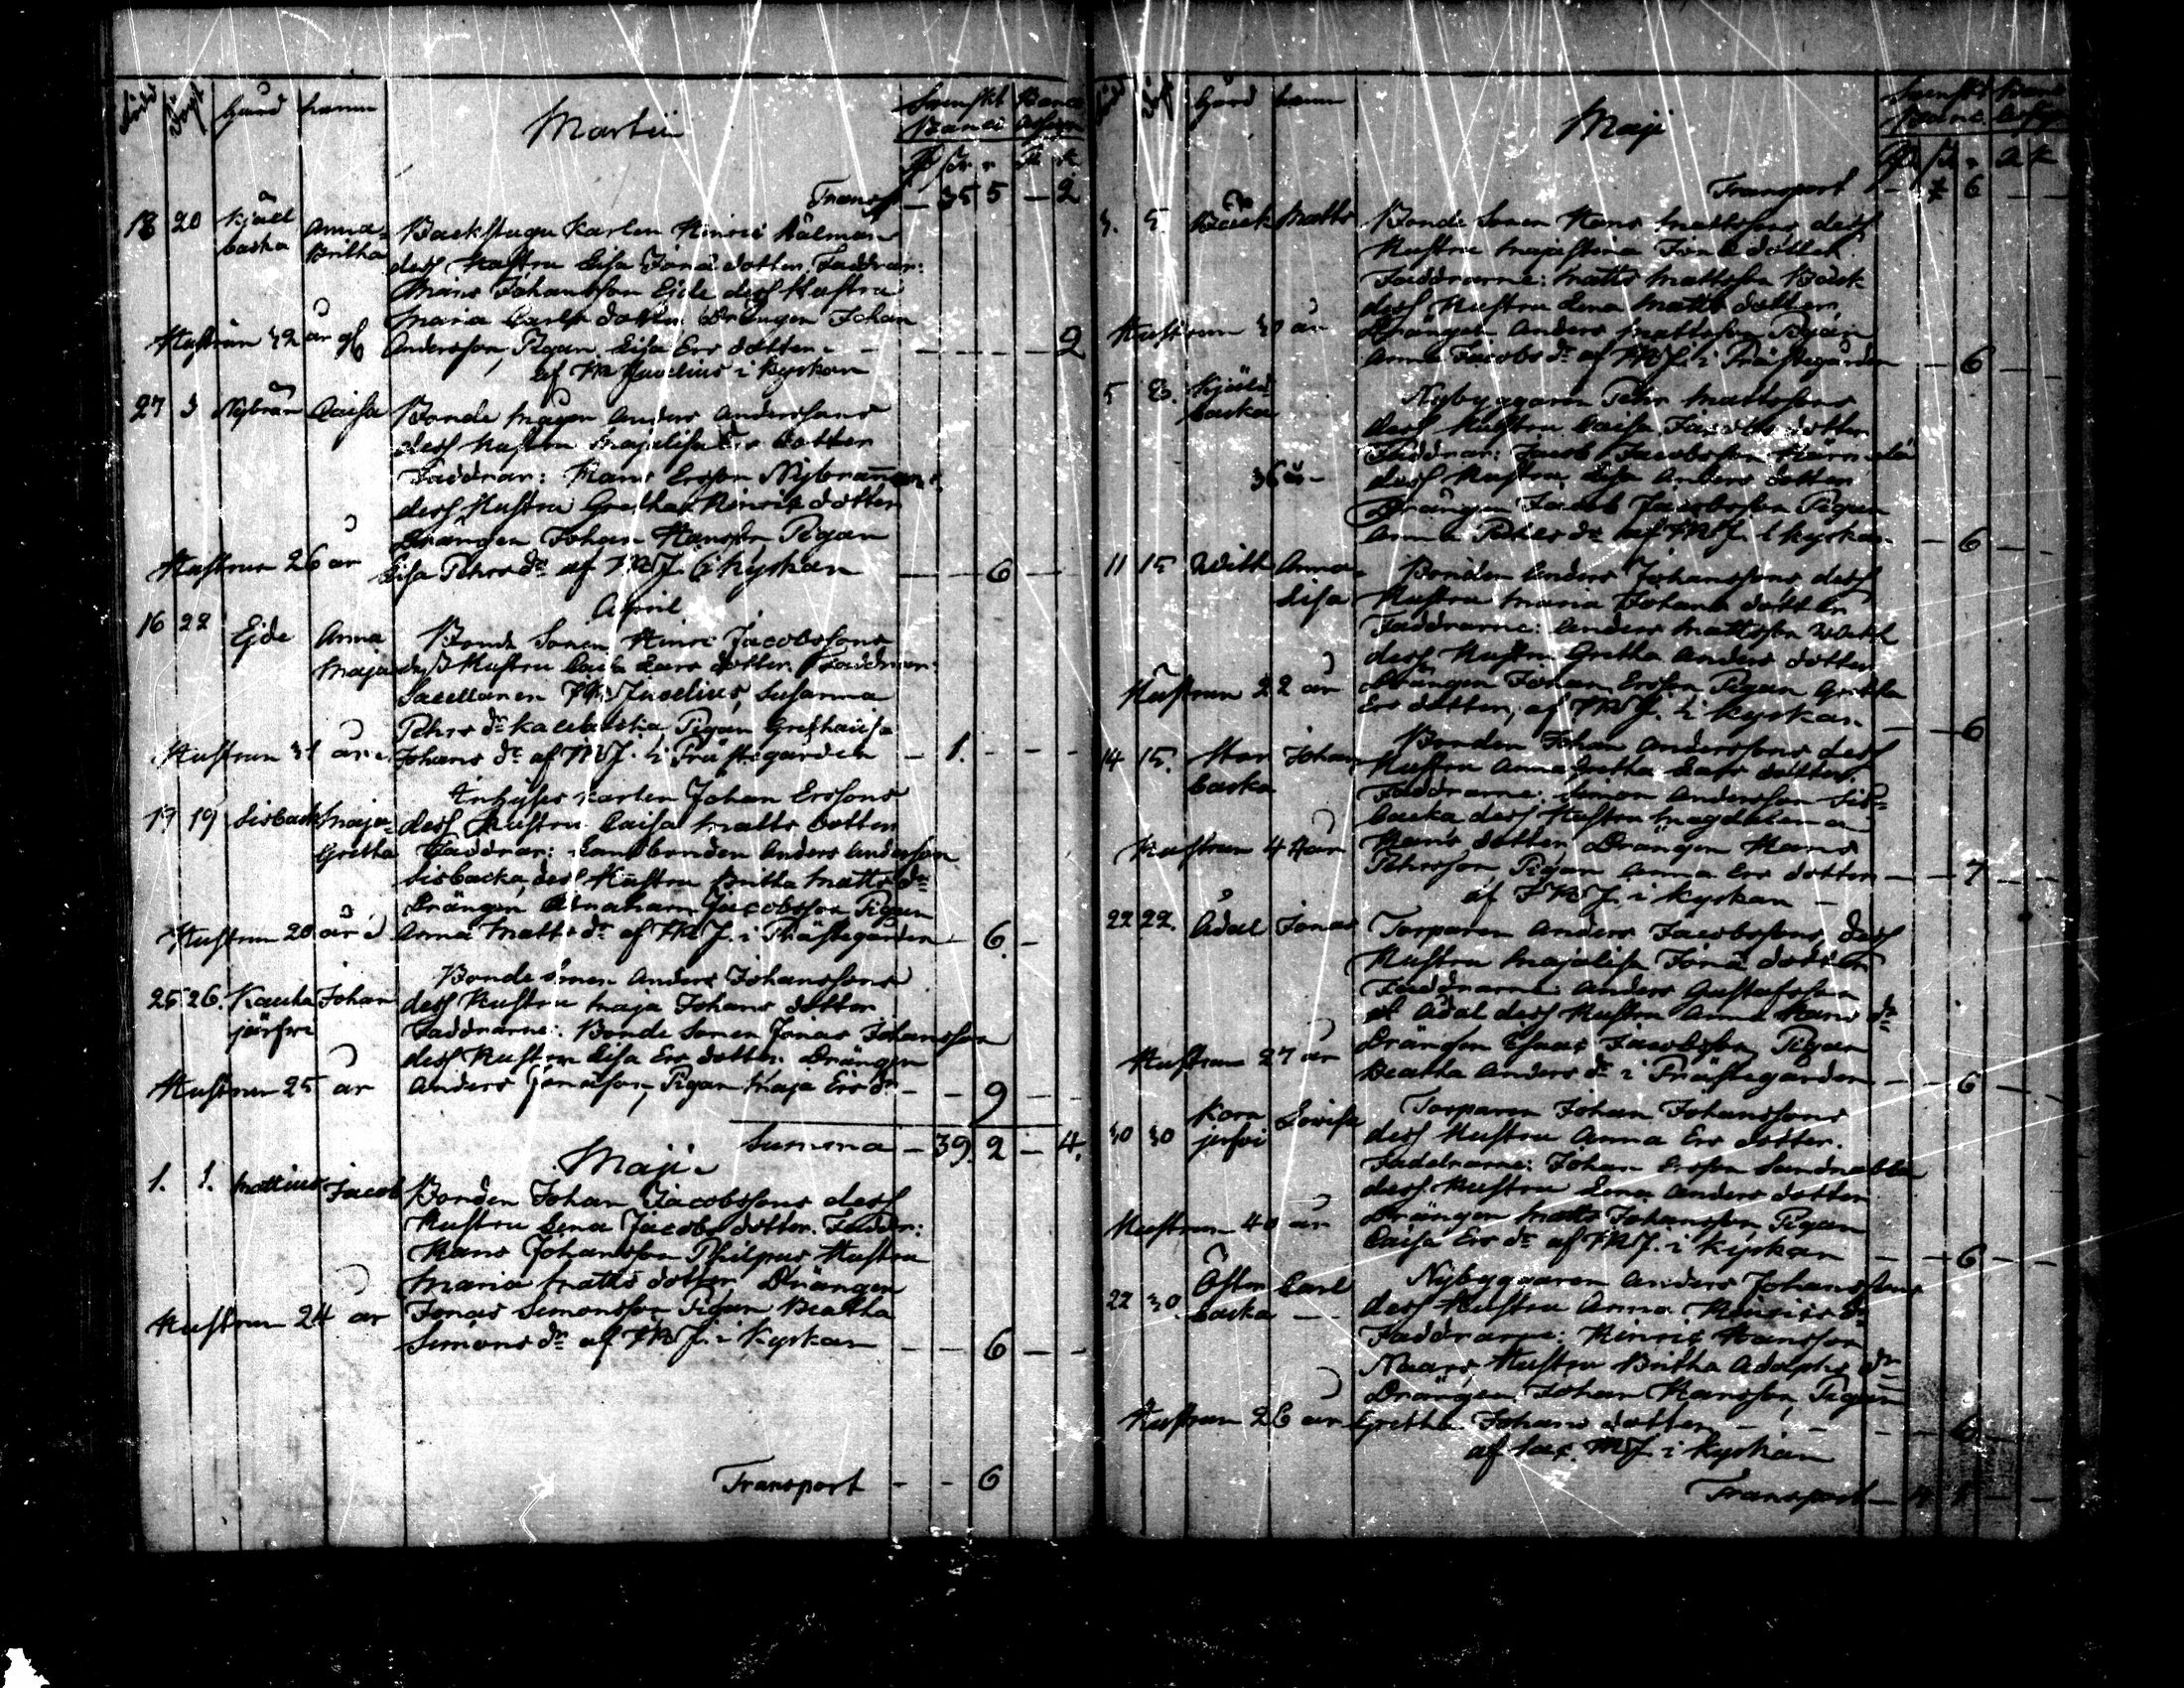 född Döpt Gård namn Martii Svenskt Banco
Banco Assign
Transp — 35 5 — 2
18 20 Kjäll Anna- Backstugu Karlen Hinric Kälmans
backa Britha dess Hustru Lisa Jona dotter. Faddrar:
Mans Johansson Ejde dess Hustru
Maria Carls dotter Drängen Johan
Hustrun 32 år gl Andersson, Pigan Lisa Ers dotter — 2
af M Juvelius i kyrkan
27 3 Nybrän Caisa Bonde Mågen Anders Anderssons
dess Hustru Majalisa Ers dotter
Faddrar: Hans Ersson Nybrännars
dess Hustru Gretha Hinrics dotter
Drängen Johan Hansson Pigan
Hustrun 26 år Lisa Pehrs dr af MJ. i kyrkan — — 6 —
April
16 22 Ejde Anna Bonde Sonen Hinric Jacobssons
Maja dess Hustru Caisa Lars dotter. Faddrar
Sacellanen Juvelius, Susanna
Pehrs dr Pigan Grethcaisa
Hustrun 31 år Johans dr af MJ. i Prästegården — 1. — — —
Inhyses karlen Johan Erssons
19 19 Lisback Maja- dess Hustru Caisa Matts dotter
Gretha Faddrar: Landbonden Anders Andersson
Lisbacka, dess Hustru Britha Matts dr
Drängen Abraham Jacobsson Pigan
Hustrun 20 år Anna Matts dr af MJ. i Prästegården — 6. —
Bonde Sonen Anders Johanssons
25 26. Kauha Johan dess Hustru Maja Johans dotter
järfwi Faddrarne: Bonde Sonen Jonas Johansson
dess Hustru Lisa Ers dotter. Drängen
Hustrun 25 år Anders Jonasson, Pigan Maja Ers dr — — 9 — —
Summa — 39. 2 — 4.
Maji
1. 1. Mattius Jacob Bonden Johan Jacobssons dess
Hustru Lena Jacobs dotter. Faddr:
Hans Johansson Philpus, Hustru
Maria Matts dotter, Drängen
Hustrun 24 år Jonas Simonsson Pigan Beatha
Simons dr af MJ. i Kyrkan — — 6 — —
Transport — — 6
Gård namn Maji Svenskt
Transport — 6 — —
3. 5. Back Matts Bonde Sonen Hans Mattssons dess
Hustru Majastina Jona dotter
Faddrarne: Matts Mattsson Back
dess Hustru Lena Matts dotter
Hustrun 30 år Drängen Anders Mattsson Pigan
Anna Jacobs dr af MJ. i Prästegården — 6 — —
5 8. Kjäld Nybyggaren Pehr Mattssons
backa dess Hustru Caisa Jacobs dotter
Faddrar: Jacob Jacobsson
36 år dess Hustru Lisa Anders dotter
Drängen Jacob Jacobsson Pigan
Anna Pehrs dr af MJ. i kyrkan — 6 — —
11 15 Witt Anna- Bonden Anders Johanssons dess
Lisa Hustru Maria Johans dotter
Faddrarne: Anders Mattsson Witt
dess Hustru Gretha Anders dotter
Hustrun 22 år Drängen Johan Ersson Pigan Gretha
Ers dotter, af MJ. i kyrkan — — 6
Bonden Johan Anderssons dess
14 15. Stor Johan Hustru Anna Gretha Lars dotter
backa Faddrarne: Simon Andersson Lis-
backa dess Hustru Magdalena
Hustrun 44 år Hans dotter Drängen Hans
Pehrsson Pigan Anna Ers dotter — — 7 — —
af MJ. i kyrkan —
22 22. Ådal Jonas Torparen Anders Jacobssons, dess
Hustru Majalisa Jona dotter
Faddrarne: Anders Gustafsson
Ådal dess Hustru Anna Hans dr
Hustrun 27 år Drängen Isaac Jacobsson, Pigan
Beatha Anders dr i Prästegården — — 6 — —
Kora Lovisa Torparen Johan Johanssons
30 30 jerfvi dess Hustru Anna Ers dotter.
Faddrarne: Johan Ersson Sandnabba
dess Hustru Lena Anders dotter
Hustrun 40 år Drängen Matts Johansson, Pigan
Caisa Ers dr af MJ. i Kyrkan — — 6 — —
Öster Carl Nybyggaren Anders Johanssons
22 30 backa — dess Hustru Anna Hinrics dr
Faddrarne: Hinric Hansson
Naars, Hustru Britha Adolphs dr
Drängen Johan Hansson, Pigan
Hustrun 26 år Gretha Johans dotter — — — — 6 —
af Sac. MJ. i kyrkan
Transport — — —